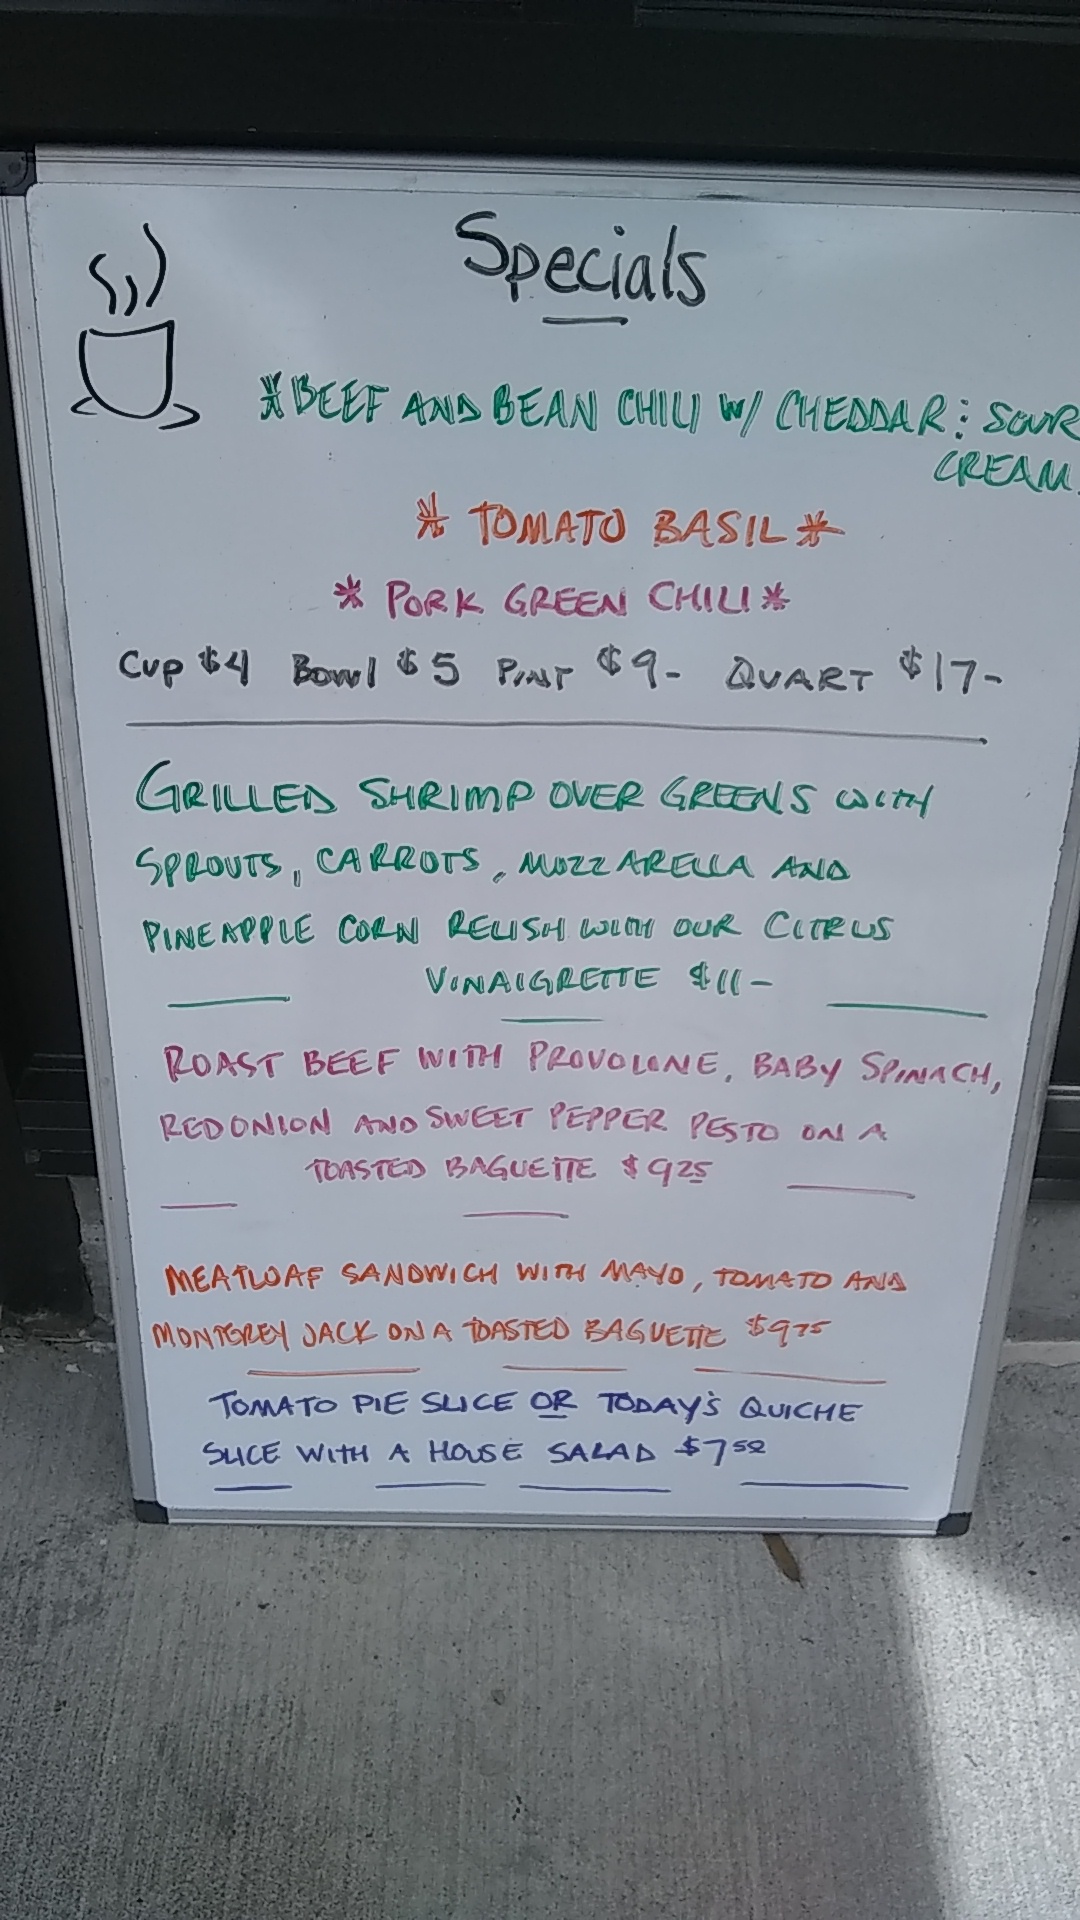 Specials
*BEEF AND BEAN CHILI W/ CHEDDAR: SOUR
CREAM.
* TOMATO BASIL *
* PORK GREEN CHILI *
Cup $4 Bowl $5 PINT $9- QUART $17-
GRILLED SHRIMP OVER GREENS WITH
SPROUTS, CARROTS, MOZZARELLA AND
PINEAPPLE CORN RELISH WITH OUR CITRUS
VINAIGRETTE $11-
ROAST BEEF WITH PROVOLONE, BABY SPINACH,
RED ONION AND SWEET PEPPER PESTO ON A
TOASTED BAGUETTE $925
MEATLOAF SANDWICH WITH MAYO, TOMATO AND
MONTEREY JACK ON A TOASTED BAGUETTE $975
TOMATO PIE SLICE OR TODAY'S QUICHE
SLICE WITH A HOUSE SALAD $750